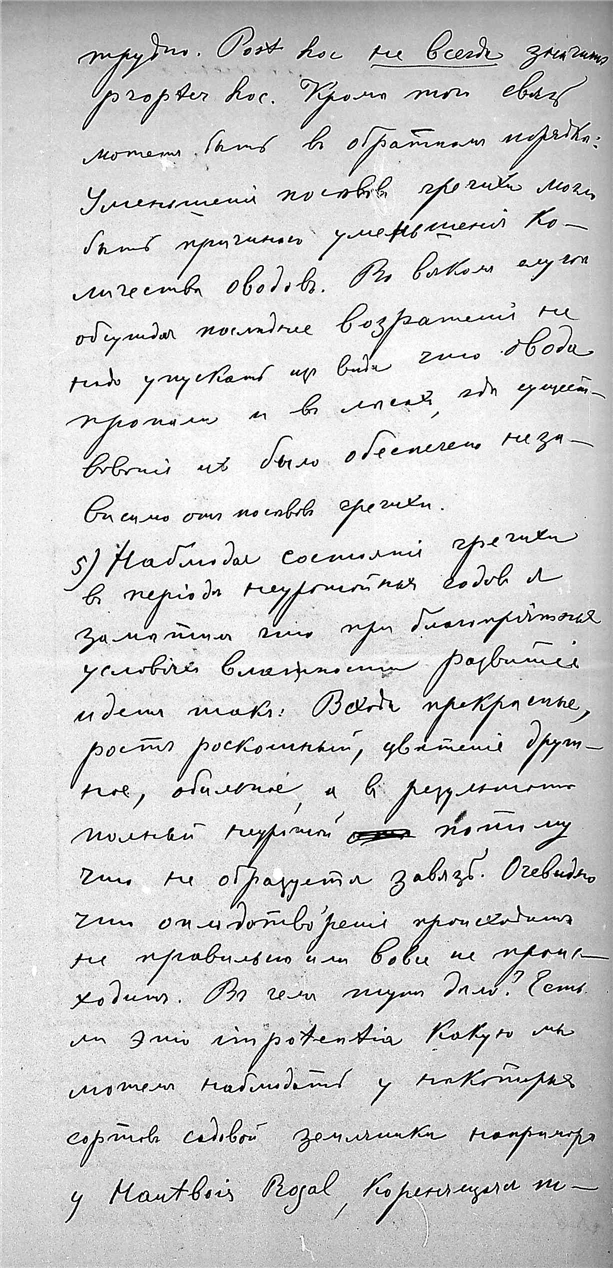 трудно. Post hoc не всегда значитъ
propter hoc. Кроме того связь
можетъ быть въ обратномъ порядке:
Уменьшенiе посѣвовъ гречихи могло
быть причиною уменьшенiя ко-
личества оводовъ. Во всякомъ случаѣ
обсуждая последнее возраженiе не
надо упускать изъ вида что овода
пропали и въ лесахъ, где сущест-
вованiе ихъ было обеспечено неза-
висимо отъ посѣвовъ гречихи.
5) Наблюдая состоянiе гречихи
въ перiодъ неурожайныхъ годовъ я
заметилъ что при благопрiятныхъ
условiяхъ влажности развитiе
идетъ такъ: Всходы прекрасные,
ростъ роскошный, цветенiе друж-
ное, обильное, а въ результате
полный неурожай потому
что не образуется завязь. Очевидно
что оплодотворенiе происходитъ
не правильно или вовсе не проис-
ходитъ. Въ чемъ тутъ дело? Есть
ли это impotentia какую мы
можемъ наблюдать у некоторыхъ
сортовъ садовой земляники напримеръ
у Hautbois Royal, коренящаяся